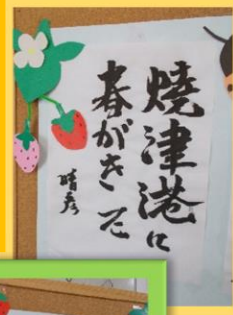 焼津港に
春がきた
晴彦